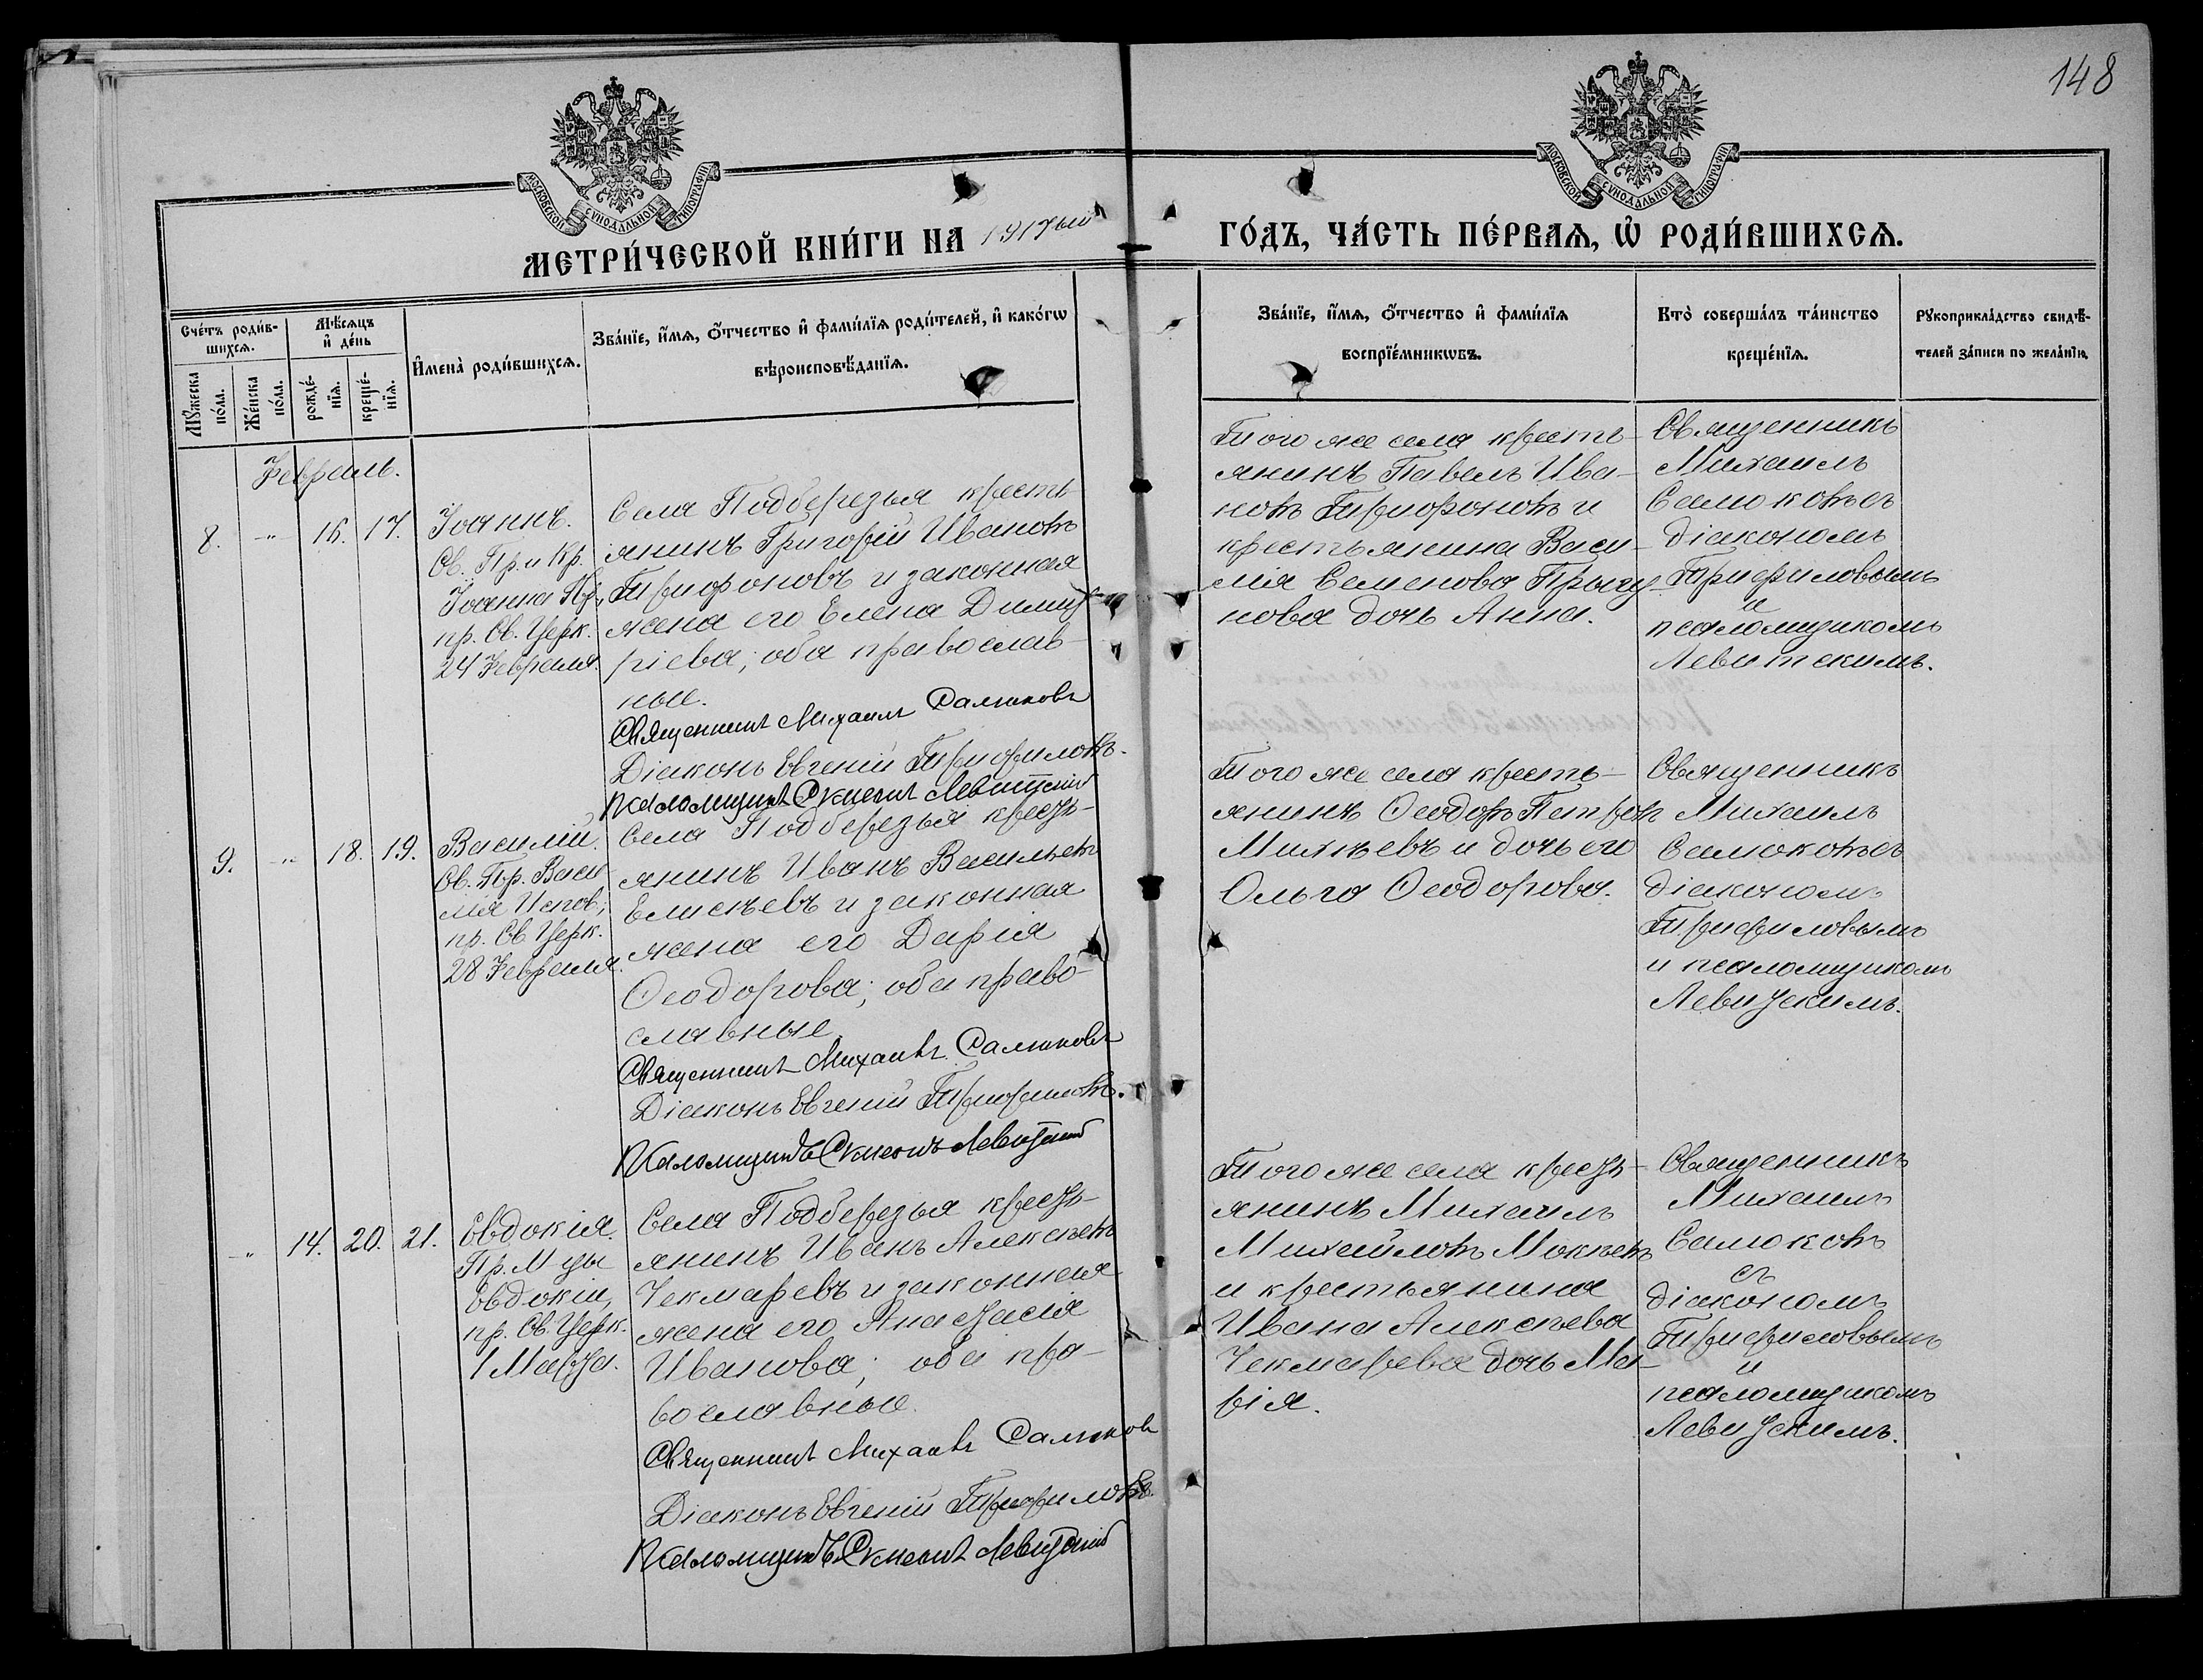 148
МОСКОВСКОЙ СѴНОДАЛЬНОЙ ТИПОГРАФІИ
МОСКОВСКОЙ СѴНОДАЛЬНОЙ ТИПОГРАФІИ
МЕТРИ́ЧЕСКОЙ КНИ́ГИ НА 1917ый
ГО́ДЪ, ЧА́СТЬ ПЕ́РВАѦ, Ѡ҆ РОДИ́ВШИХСѦ.
Сче́тъ роди́в-
шихсѧ.
Мꙋ́жеска
по́ла.
Же́нска
по́ла.
Мѣ́сѧцъ
и҆ де́нь
рожде́-
нїѧ.
креще́-
нїѧ.
И҆мена̀ роди́вшихсѧ.
Зва́нїе, и҆́мѧ, ѻ҆́тчество и҆ фами́лїѧ роди́телей, и҆ како́гѡ
вѣроисповѣ́данїѧ.
Зва́нїе, и҆́мѧ, ѻ҆́тчество и҆ фами́лїѧ
воспрїе́мникѡвъ.
Кто̀ соверша́лъ та́инство
креще́нїѧ.
Рꙋкоприкла́дство свидѣ́-
телей за́писи по жела́нїю.
Февраль.
8.
-"-
16.
17.
Іоаннъ.
Св. Пр. и Кр.
Іоанна Пр.,
пр. Св. Церк.
24 Февраля.
Села Подберезья кресть-
янинъ Григорій Ивановъ
Трифоновъ и законная
жена его Елена Димит-
ріева; оба православ-
ные.
Священникъ Михаилъ Самоковъ
Діаконъ Евгеній Трифиловъ.
Псаломщикъ Симеонъ Левитскій
Того же села кресть-
янинъ Павелъ Ива-
новъ Трифоновъ и
крестьянина Васи-
лія Семенова Прыгу-
нова дочь Анна.
Священникъ
Михаилъ
Самоковъ съ
діакономъ
Трифиловымъ
и
псаломщикомъ
Левитскимъ.
9.
-"-
18.
19.
Василій.
Св. Пр. Васи
лія Испов.;
пр. Св. Церк.
28 Февраля.
Села Подберезья кресть-
янинъ Иванъ Васильевъ
Елисѣевъ и законная
жена его Дарія
Ѳеодорова; оба право-
славные.
Священникъ Михаилъ Самоковъ
Діаконъ Евгеній Трифиловъ.
Псаломщикъ Симеонъ Левитскій
Того же села кресть-
янинъ Ѳеодоръ Петровъ
Михѣевъ и дочь его
Ольга Ѳеодорова.
Священникъ
Михаилъ
Самоковъ съ
діакономъ
Трифиловымъ
и псаломщикомъ
Левитскимъ.
-"-
14.
20.
21.
Евдокія.
Пр. М-цы
Евдокіи,
пр. Св. Церк.
1 Марта.
Села Подберезья кресть-
янинъ Иванъ Алексѣевъ
Чекмаревъ и законная
жена его Анастасія
Иванова; оба пра-
вославные.
Священникъ Михаилъ Самоковъ
Діаконъ Евгеній Трифиловъ.
Псаломщикъ Симеонъ Левитскій
Того же села кресть-
янинъ Михаилъ
Михайловъ Мокѣевъ
и крестьянина
Ивана Алексѣева
Чекмарева дочь Ма-
рія.
Священникъ
Михаилъ
Самоковъ
съ
діакономъ
Трифиловымъ
и
псаломщикомъ
Левитскимъ.